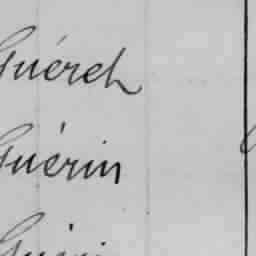 Guéreh
Guérin